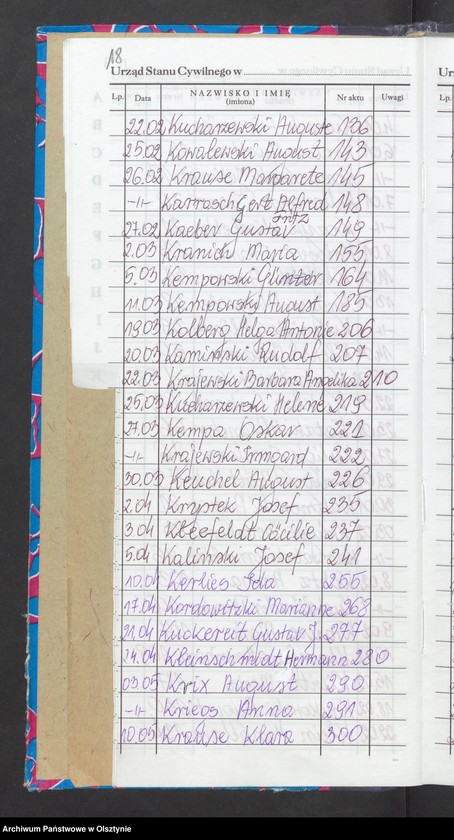 18
Urząd Stanu Cywilnego w
Lp. Data NAZWISKO I IMIĘ (imiona) Nr aktu Uwagi
22.02 Kucharzewski Auguste 136
25.02 Kowalewski August 143
26.02 Krause Margarete 145
-11- Karrasch Gert Alfred 148
Fritz
27.02 Kaeber Gustav 149
2.03 Kranich Maria 155
5.03 Kempowski Günter 164
11.03 Kempowski August 185
19.03 Kolberg Helga Antonie 206
20.03 Kamiński Rudolf 207
22.03 Krajewski Barbara Angelika 210
25.03 Kucharzewski Helene 219
27.03 Kempa Oskar 221
-11- Krajewski Irmgard 222
30.03 Keuchel August 226
2.04 Kryptek Josef 235
3.04 Kleefeldt Cäcilie 237
5.04 Kaliński Josef 241
10.04 Kerlies Ida 255
17.04 Kordowitzki Marianne 268
21.04 Kuckereit Gustav J. 277
24.04 Kleinschmidt Hermann 280
03.05 Krix August 290
-11- Anna 291
10.05 Krause Klara 300
Archiwum Państwowe w Olsztynie